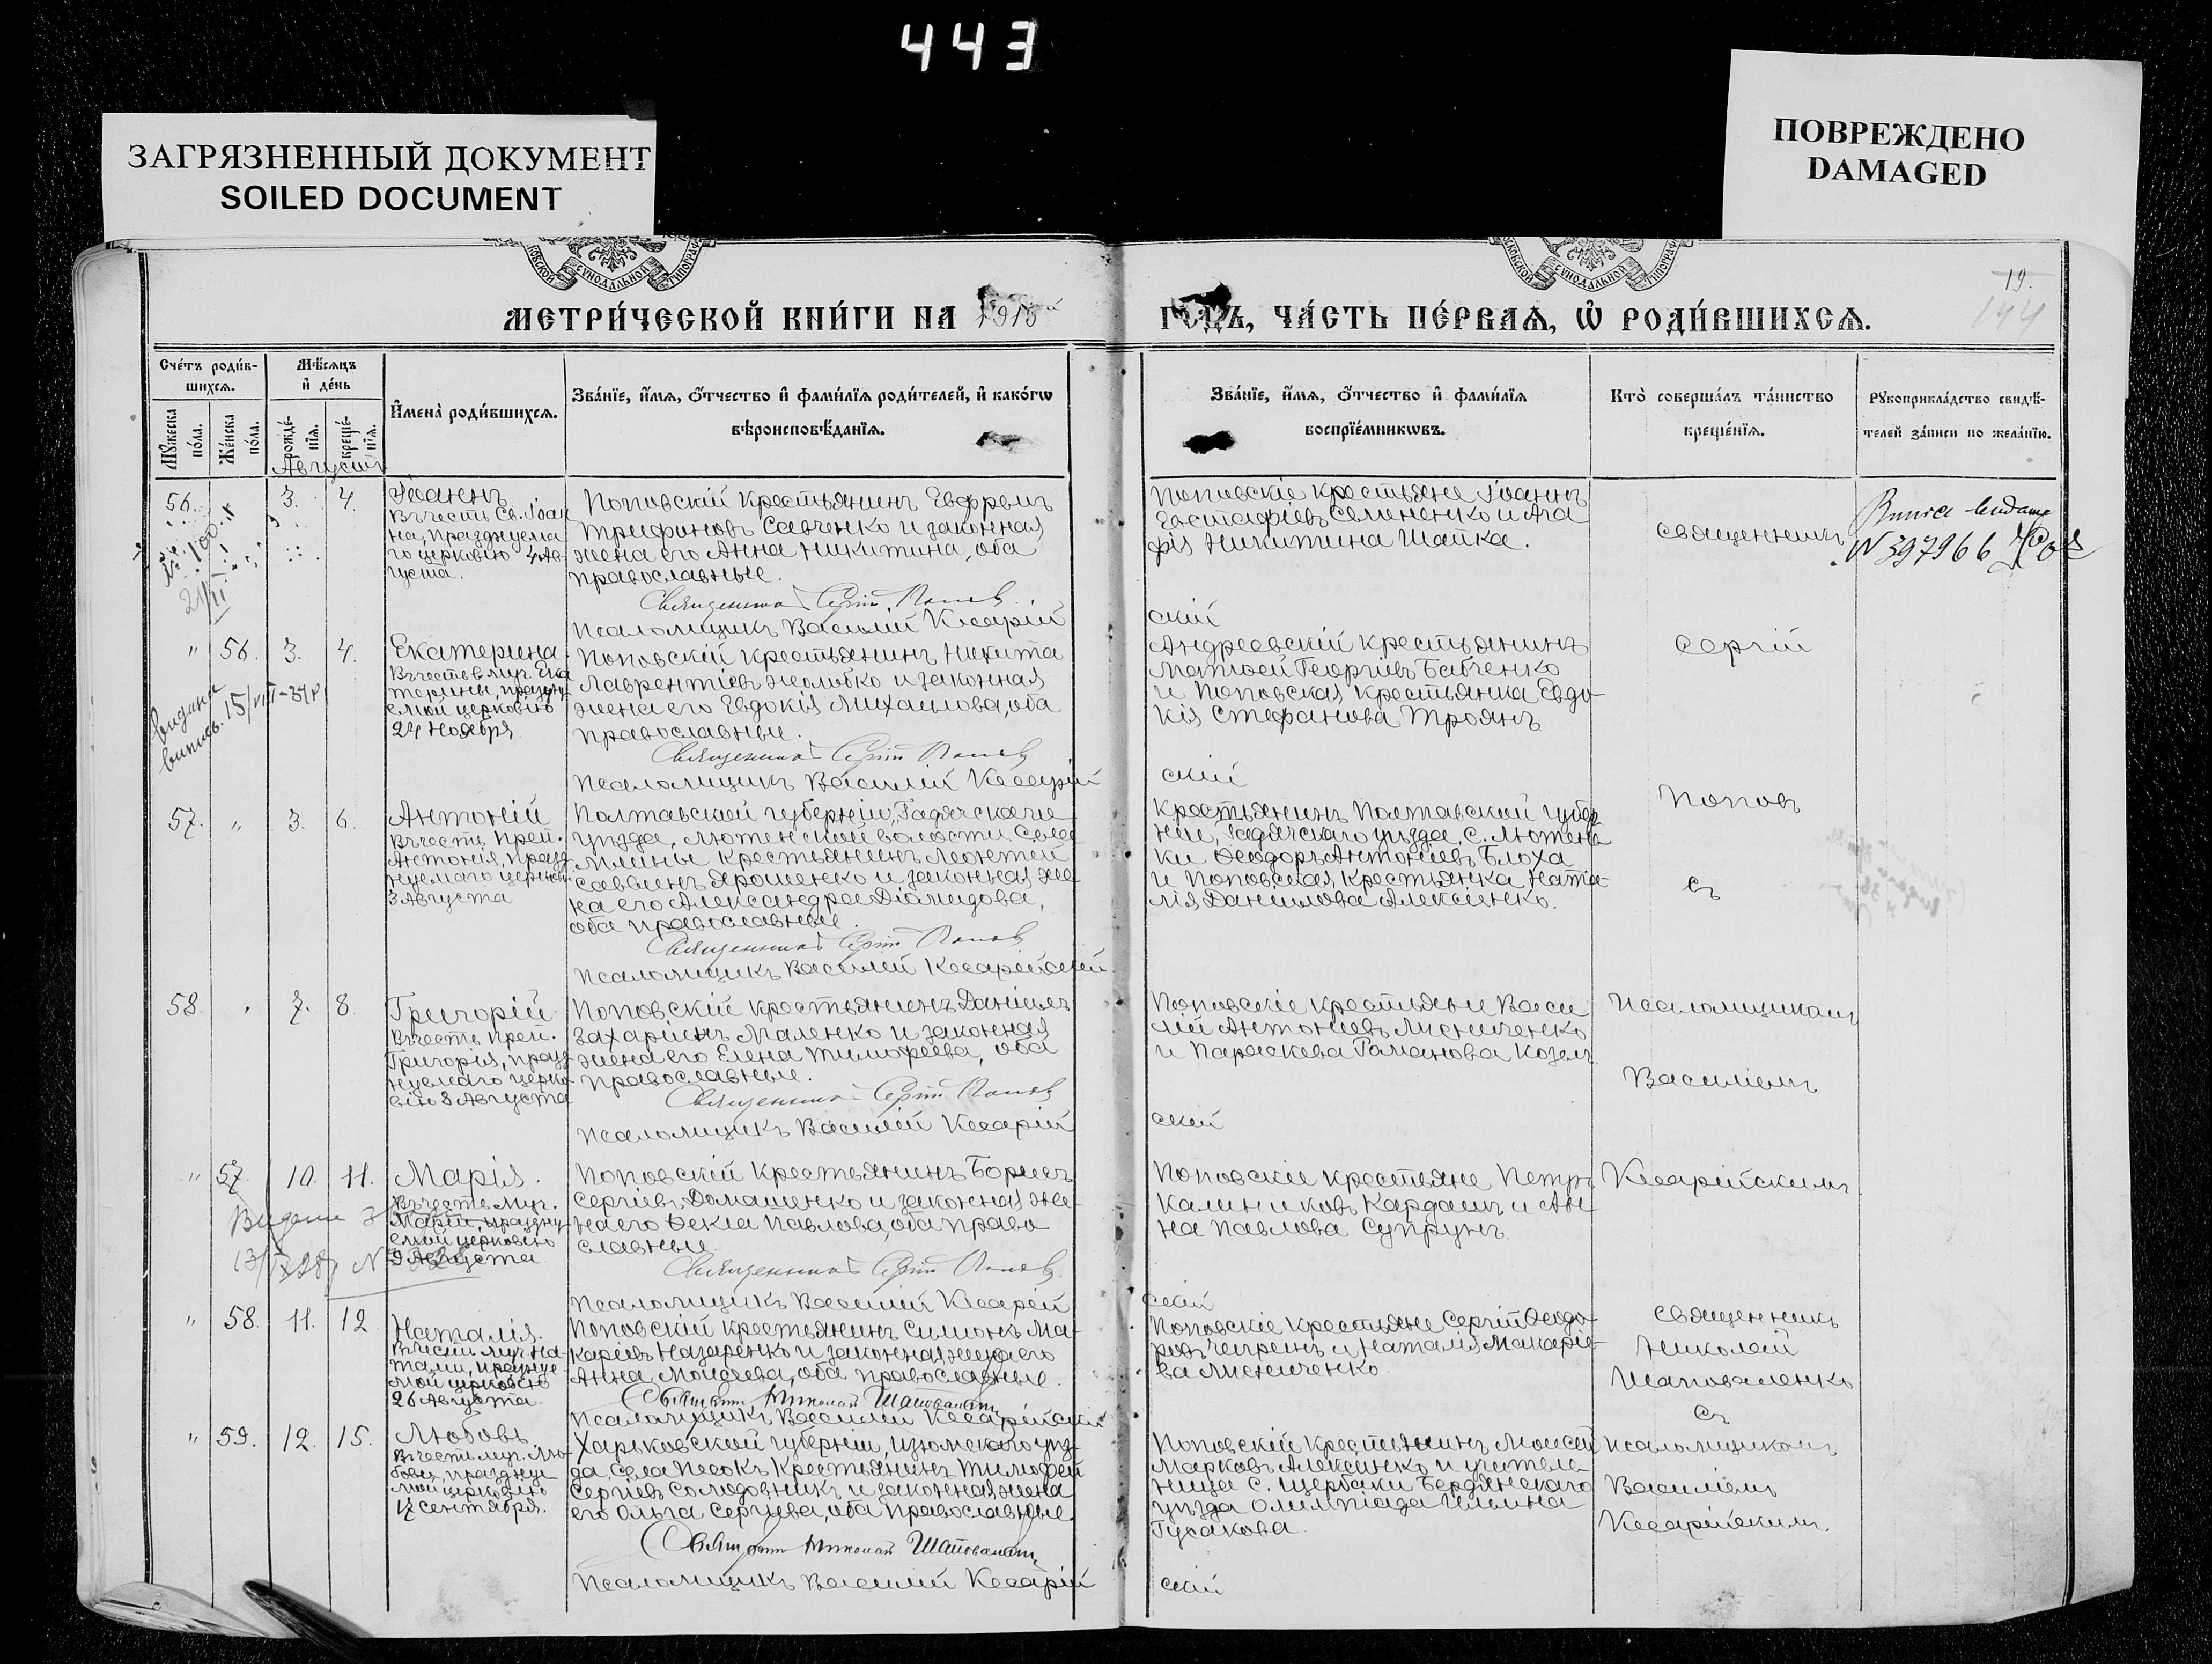 443
ЗАГРЯЗНЕННЫЙ ДОКУМЕНТ
SOILED DOCUMENT
ПОВРЕЖДЕНО
DAMAGED
19.
144
МЕТРИ́ЧЕСКОЙ КНИ́ГИ НА 1915й ГОДЪ, ЧА́СТЬ ПЕ́РВАЯ, Ѡ҆ РОДИ́ВШИХСЯ.
Сче́тъ роди́в-
шихся.
Мꙋ́жеска по́ла.
Же́нска по́ла.
Мѣ́сяцъ
и҆ де́нь
рожде́-
нїя.
креще́-
нїя.
И҆мена̀ роди́вшихся.
Зва́нїе, и҆́мя, ѻ҆́тчество и҆ фами́лїя роди́телей, и҆ како́гѡ
вѣроисповѣ́данїя.
Зва́нїе, и҆́мя, ѻ҆́тчество и҆ фами́лїя
воспрїе́мникѡвъ.
Кто̀ соверша́лъ та́инство
креще́нїя.
Рꙋкоприкла́дство свидѣ́-
телей за́писи по жела́нїю.
Августъ
56. 3. 4.
Іоаннъ
Въ честь Св. Іоан
на, празднуема
го церковію 4 Ав-
густа.
Поповскій крестьянинъ Евфремъ
Трифоновъ Савченко и законная
жена его Анна Никитина, оба
православные.
Священникъ Сергій Поповъ
Псаломщикъ Василій Кесарій
скій
Поповскіе крестьяне Іоаннъ
Евстафіевъ Семененко и Ага
фія Никитина Шайка.
священникъ
№ 397966
№ 100
" 56. 3. 4.
Екатерина
Въ честь вмуч. Ека
терины, праздну
емой церковію
24 Ноября
Поповскій крестьянинъ Никита
Лаврентіевъ Жолобко и законная
жена его Евдокія Михаилова, оба
православные.
Священникъ Сергій Поповъ
Псаломщикъ Василій Кесарій
скій
Андреевскій крестьянинъ
Матвей Георгіевъ Бабченко
и Поповская крестьянка Евдо-
кія Стефанова Троянъ
Сергій
видана
випись. 15/VIII-34р
57. " 3. 6.
Антоній
Въ честь Преп.
Антонія, празд
нуемаго церков.
3 Августа
Полтавской губерніи, Гадячскаго
уѣзда, Лютенской волости, села
Млины крестьянинъ Леонтій
Саввинъ Ярошенко и законная же-
на его Александра Діомидова,
оба православные.
Священникъ Сергій Поповъ
Псаломщикъ Василій Кесарійскій
Крестьянинъ Полтавской губер
ніи, Гадячскаго уѣзда, с. Лютень
ки Ѳеодоръ Антоніевъ Блоха
и Поповская крестьянка Ната-
лія Данилова Алексіенко.
Поповъ
съ
58. " 7. 8.
Григорій
Въ честь Преп.
Григорія, празд
нуемаго церко-
вію 8 Августа
Поповскій крестьянинъ Даніилъ
Захаріинъ Маленко и законная
жена его Елена Тимофеева, оба
православные.
Священникъ Сергій Поповъ
Псаломщикъ Василій Кесарій
скій
Поповскіе крестьяне Васи
лій Антоніевъ Лисниченко
и Параскева Романова Козелъ
Псаломщикомъ
Василіемъ
" 57. 10. 11.
Марія.
Въ честь Муч.
Маріи, праздну-
емой церковію
9 Августа
Поповскій крестьянинъ Борисъ
Сергіевъ Домашенко и законная же-
на его Ѳекла Павлова, оба право
славные
Священникъ Сергій Поповъ.
Псаломщикъ Василій Кесарій
скій
Поповскіе крестьяне Петръ
Калиниковъ Кардашъ и Ан-
на Павлова Супрунъ
Кесарійскимъ
" 58. 11. 12
Наталія.
Въ честь муч. На-
таліи, праздуе-
мой церковію
26 Августа.
Поповскій крестьянинъ Симіонъ Ма-
каріевъ Назаренко и законная жена его
Анна Моисеева, оба православные.
Священ. Николай Шаповаленко
Псаломщикъ Василій Кесарійскій
Поповскіе крестьяне Сергій Ѳеодо-
ровъ Чепринъ и Наталія Макаріе-
ва Лисниченко
священникъ
Николай
Шаповаленко
съ
" 59. 12. 15.
Любовь
Въ честь муч. Лю-
бови, праздуе
мой церковію
17 сентября.
Харьковской губерніи, Изюмскаго уѣз-
да, села Песокъ крестьянинъ Тимофей
Сергіевъ Солодовникъ и законная жена
его Ольга Сергіева, оба православные.
Священ. Николай Шаповаленко
Псаломщикъ Василій Кесарій
скій
Поповскій крестьянинъ Моисей
Марковъ Алексіенко и учитель-
ница с. Щербаки Бердянскаго
уѣзда Олимпіада Ильина
Гусакова.
псаломщикомъ
Василіемъ
Кесарійскимъ.